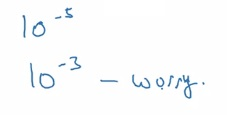 10⁻⁵
10⁻³ – worry.